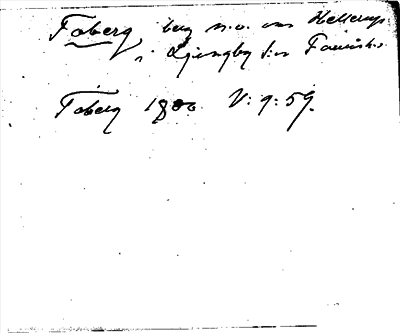 Toberg, berg n.o. om Hellerup
i Ljungby s:n Faurås.
Toberg 1880 V: 9: 59.